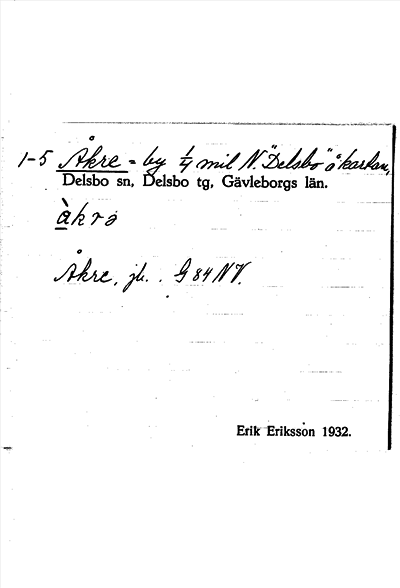 1-5 Åkre = by 1/4 mil N. "Delsbo" å kartan,
Delsbo sn, Delsbo tg, Gävleborgs län.
àkrə
Åkre, jb. . G 84 NV.
Erik Eriksson 1932.